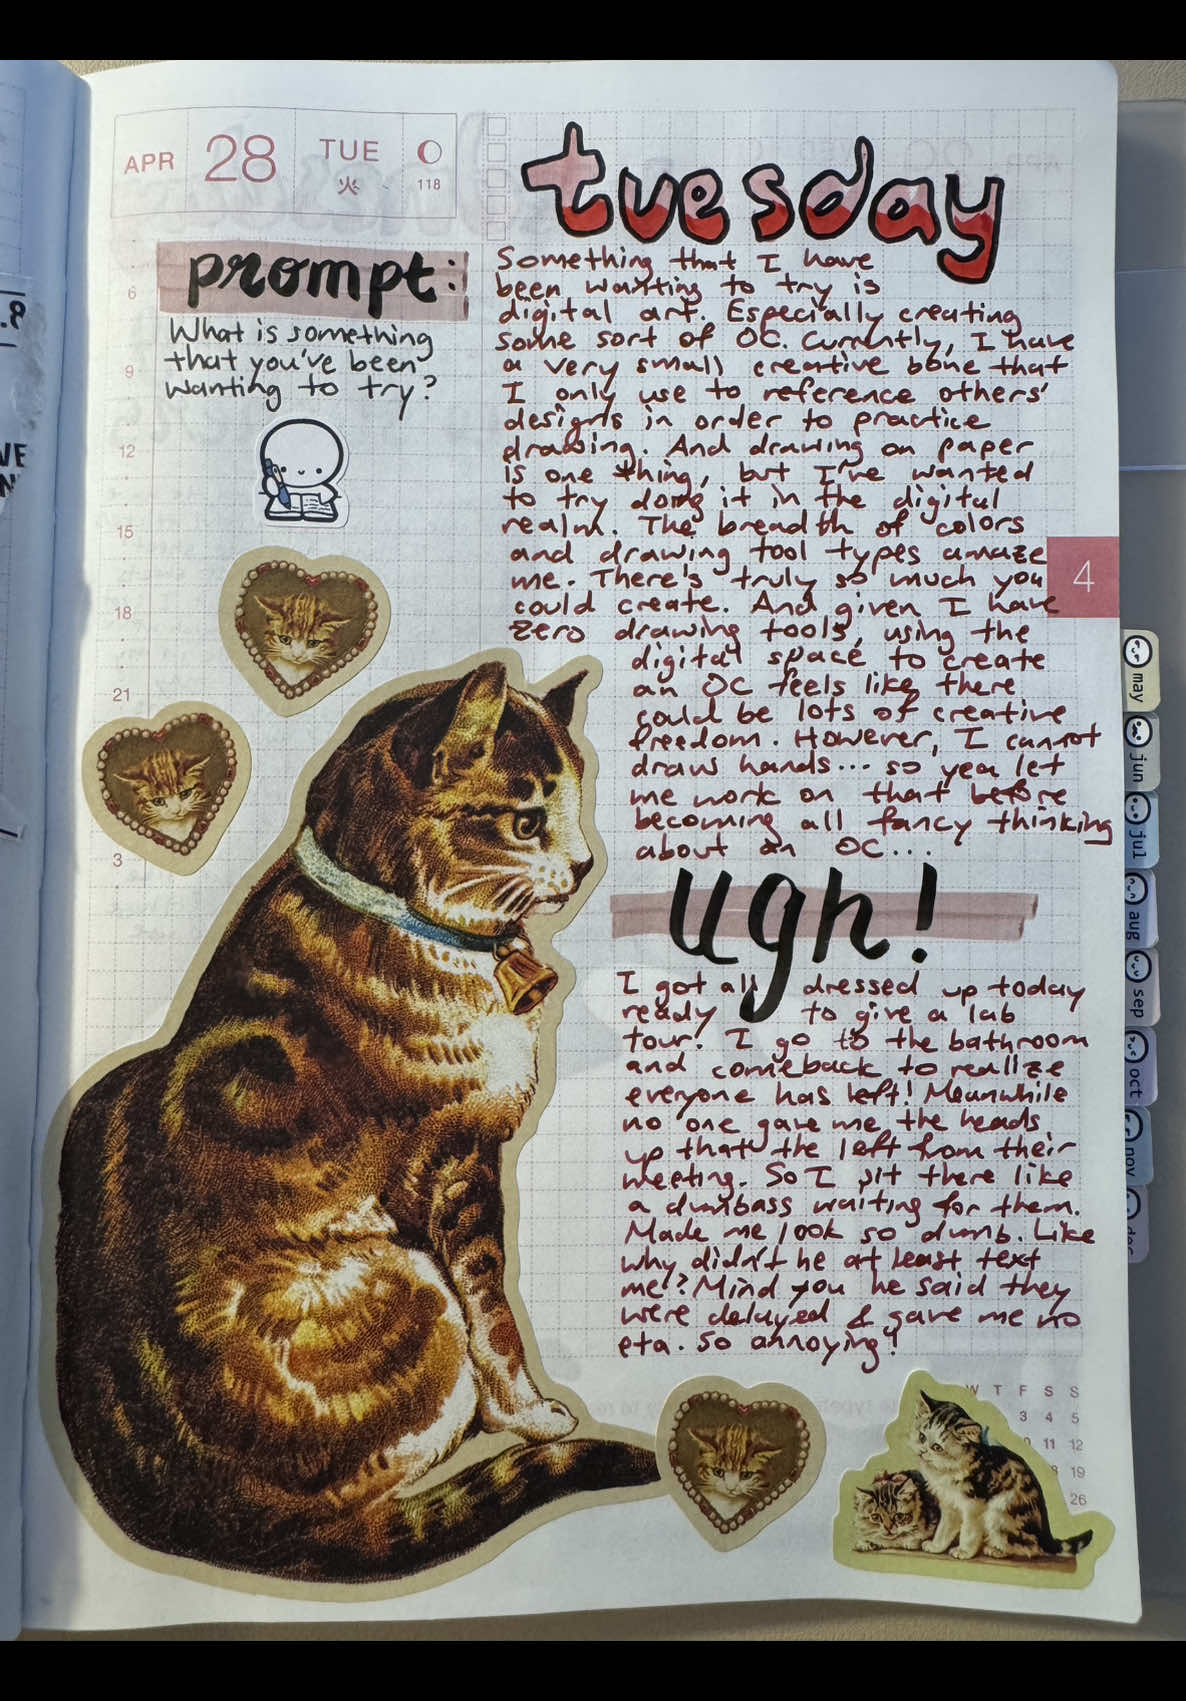 APR 28 TUE
火 118
tuesday
prompt:
What is something
that you've been
wanting to try?
6
9
12
15
18
21
3
Something that I have
been wanting to try is
digital art. Especially creating
some sort of OC. Currently, I have
a very small creative bone that
I only use to reference others'
designs in order to practice
drawing. And drawing on paper
is one thing, but I've wanted
to try doing it in the digital
realm. The breadth of colors
and drawing tool types amaze
me. There's truly so much you
could create. And given I have
zero drawing tools, using the
digital space to create
an OC feels like there
could be lots of creative
freedom. However, I cannot
draw hands... so yea let
me work on that before
becoming all fancy thinking
about an OC...
ugh!
I got all dressed up today
ready to give a lab
tour! I go to the bathroom
and comeback to realize
everyone has left! Meanwhile
no one gave me the heads
up that the left from their
meeting. So I sit there like
a dumbass waiting for them.
Made me look so dumb. Like
why didn't he at least text
me? Mind you he said they
were delayed & gave me no
eta. So annoying!
4
may
jun
jul
aug
sep
oct
nov
W T F S S
3 4 5
11 12
19
26